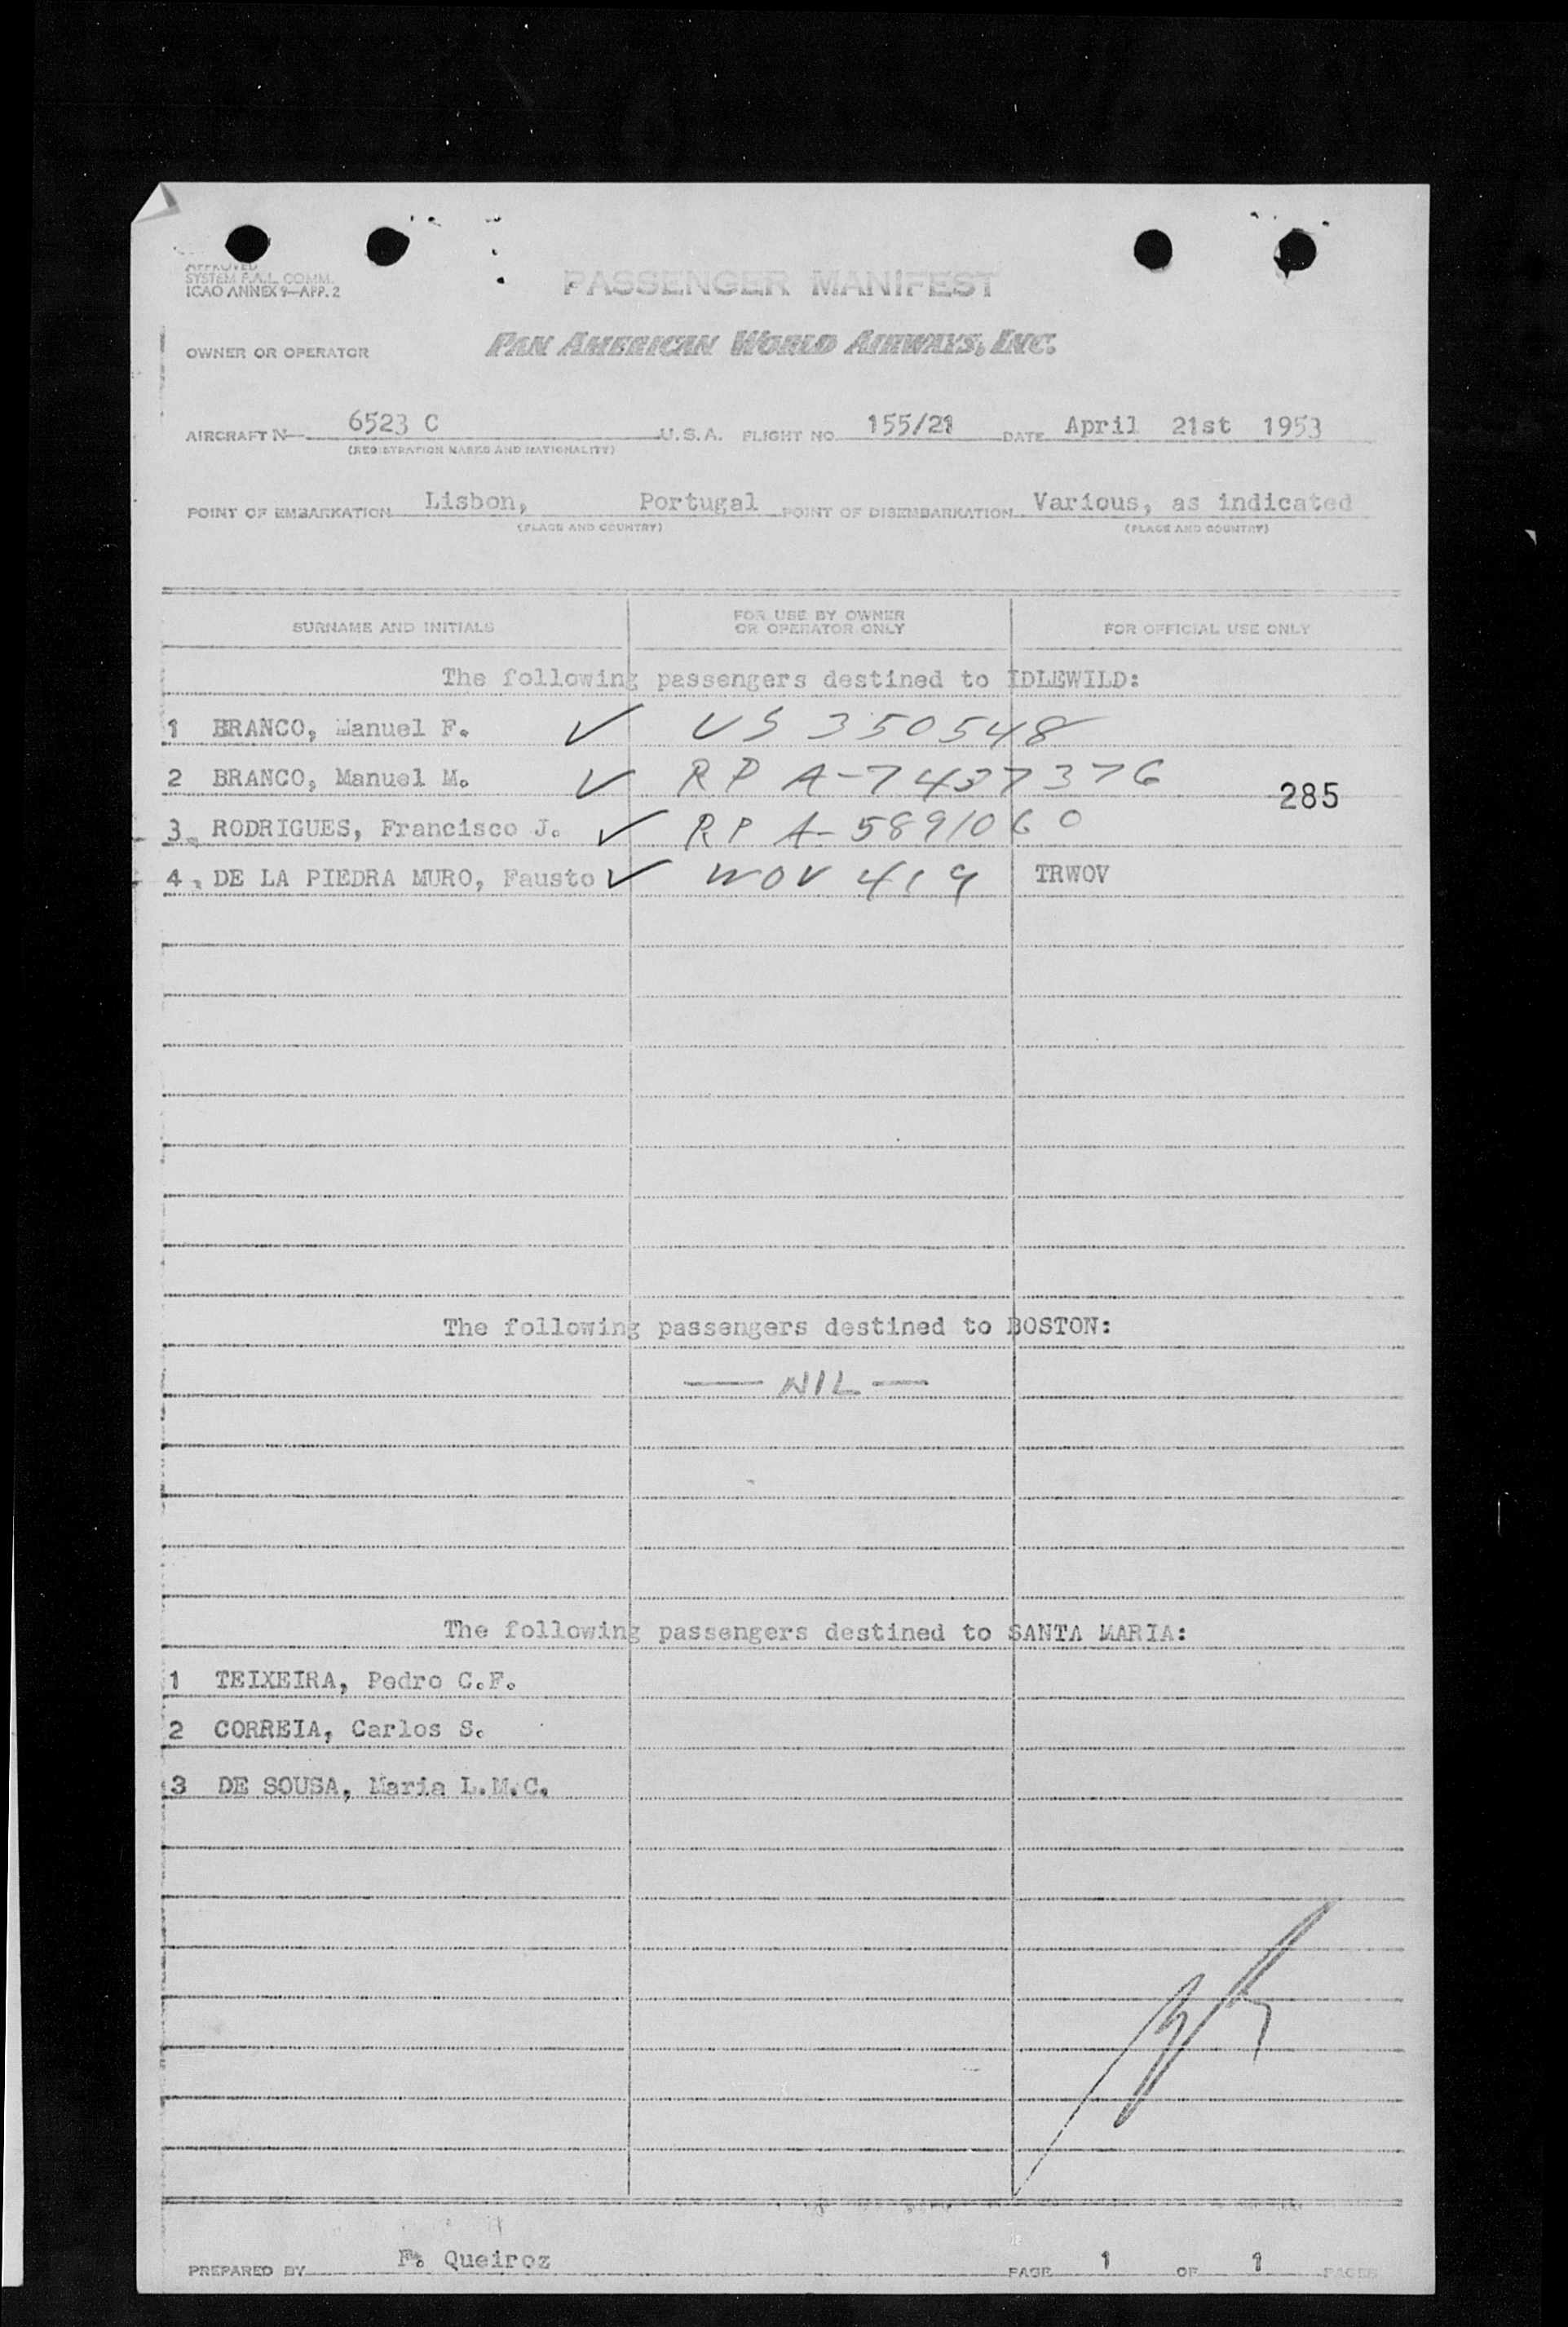 APPROVED
SYSTEM F.A.L. COMM.
ICAO ANNEX 9—APP. 2
PASSENGER MANIFEST
OWNER OR OPERATOR PAN AMERICAN WORLD AIRWAYS, INC.
AIRCRAFT N 6523 C U.S.A. FLIGHT NO. 155/21 DATE April 21st 1953
(REGISTRATION MARKS AND NATIONALITY)
POINT OF EMBARKATION Lisbon, Portugal POINT OF DISEMBARKATION Various, as indicated
(PLACE AND COUNTRY) (PLACE AND COUNTRY)
SURNAME AND INITIALS FOR USE BY OWNER OR OPERATOR ONLY FOR OFFICIAL USE ONLY
The following passengers destined to IDLEWILD:
1 BRANCO, Manuel F. ✓ US 350548
2 BRANCO, Manuel M. ✓ RP A-7437376
285
3. RODRIGUES, Francisco J. ✓ RP A-5891060
4. DE LA PIEDRA MURO, Fausto ✓ WOV 419 TRWOV
The following passengers destined to BOSTON:
— NIL —
The following passengers destined to SANTA MARIA:
1 TEIXEIRA, Pedro C.F.
2 CORREIA, Carlos S.
3 DE SOUSA, Maria L.M.C.
PREPARED BY F. Queiroz PAGE 1 OF 1 PAGES